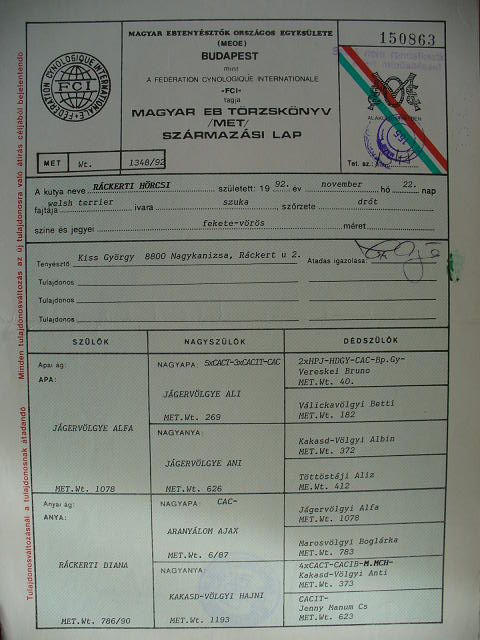 MAGYAR EBTENYÉSZTŐK ORSZÁGOS EGYESÜLETE
(MEOE)
BUDAPEST
mint
A FEDERATION CYNOLOGIQUE INTERNATIONALE
-FCI-
tagja
MAGYAR EB TÖRZSKÖNYV
/MET/
SZÁRMAZÁSI LAP
FEDERATION CYNOLOGIQUE INTERNATIONALE
FCI
150863
155
Tet. sz.:
MET Wt. 1348/92
A kutya neve RÁCKERTI HÖRCSI született: 19 92. év november hó 22. nap
fajtája welsh terrier ivara szuka szőrzete drót
színe és jegyei fekete-vörös méret
Tenyésztő Kiss György 8800 Nagykanizsa, Ráckert u 2. Átadás igazolása:
Tulajdonos
Tulajdonos
Tulajdonos
SZÜLŐK NAGYSZÜLŐK DÉDSZÜLŐK
Apai ág:
APA:
JÁGERVÖLGYE ALFA
MET.Wt. 1078
NAGYAPA: 5xCACT-3xCACIT-CAC
JÁGERVÖLGYE ALI
MET.Wt. 269
NAGYANYA:
JÁGERVÖLGYE ANI
MET.Wt. 626
2xHPJ-HDGY-CAC-Bp.Gy-
Vereskei Bruno
MET.Wt. 40.
Válickavölgyi Betti
MET.Wt. 182
Kakasd-Völgyi Albin
MET.Wt. 372
Töttöstáji Aliz
ME.Wt. 412
Anyai ág:
ANYA:
RÁCKERTI DIANA
MET.Wt. 786/90
NAGYAPA: CAC-
ARANYÁLOM AJAX
MET.Wt. 6/87
NAGYANYA:
KAKASD-VÖLGYI HAJNI
MET.Wt. 1193
Jágervölgyi Alfa
MET.Wt. 1078
Marosvölgyi Boglárka
MET.Wt. 783
4xCACT-CACIB-M.MCH-
Kakasd-Völgyi Anti
MET.Wt. 373
CACIT-
Jenny Manum Cs
MET.Wt. 623
Tulajdonosváltozásnál a tulajdonosnak átadandó
Minden tulajdonosváltozás az új tulajdonosra való átírás céljából bejelentendő